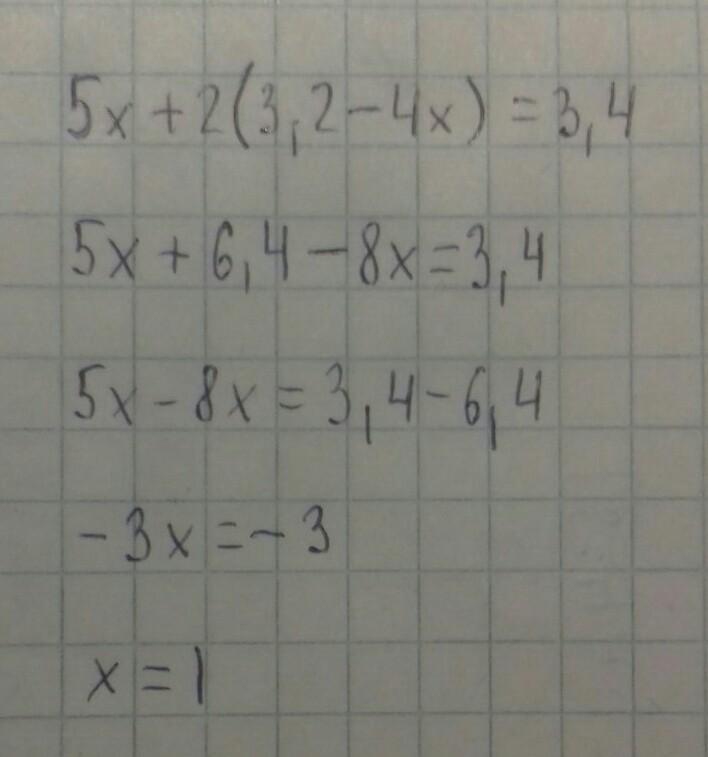 5x + 2(3,2 - 4x) = 3,4
5x + 6,4 - 8x = 3,4
5x - 8x = 3,4 - 6,4
- 3x = - 3
x = 1